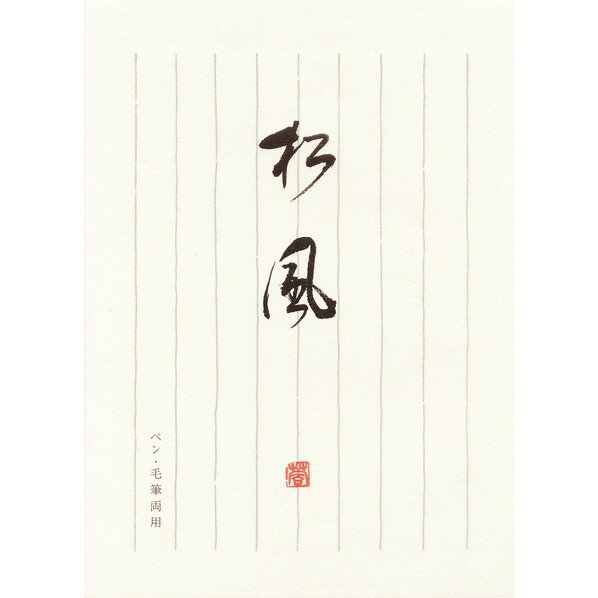 松風
ペン・毛筆両用